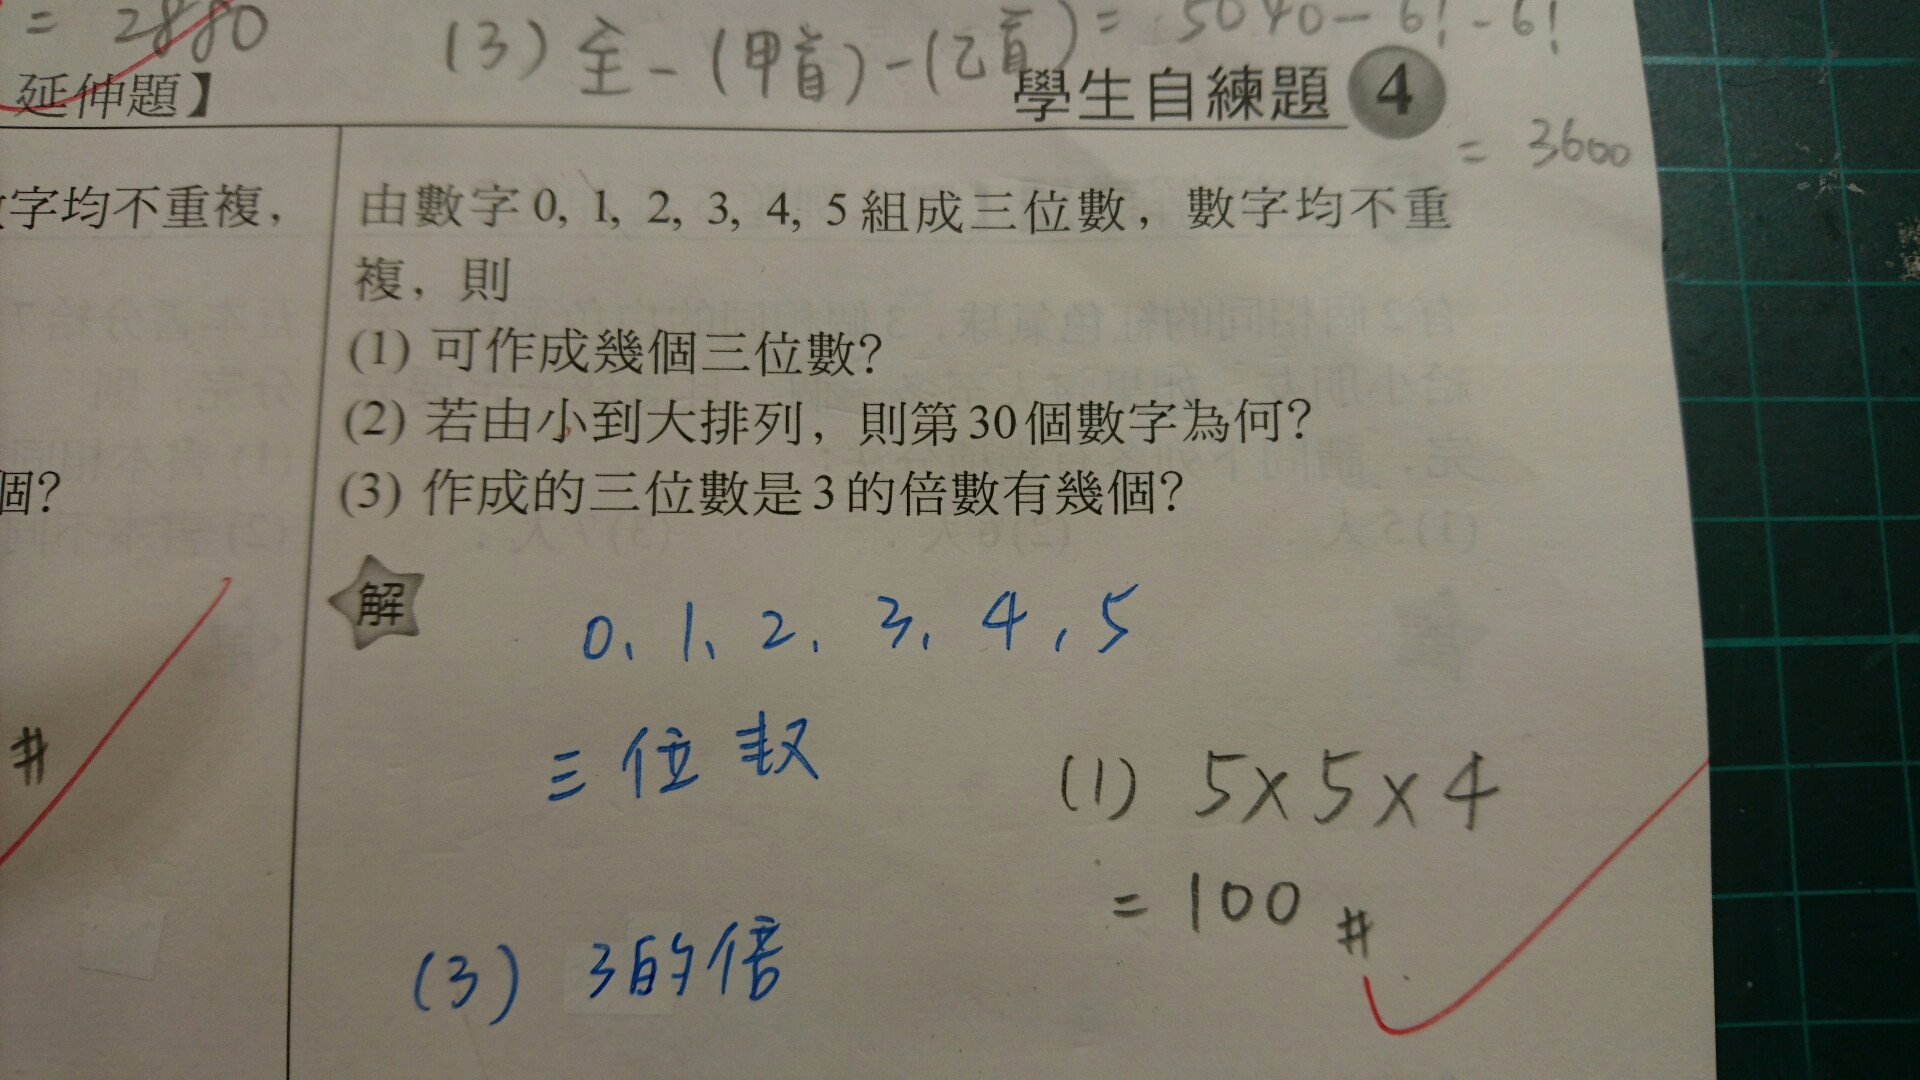 = 2880
(3) 全 - (甲首) - (乙首) = 5040 - 6! - 6!
= 3600
延伸題】
學生自練題 4
字均不重複,
個?
#
由數字 0, 1, 2, 3, 4, 5 組成三位數, 數字均不重
複, 則
(1) 可作成幾個三位數?
(2) 若由小到大排列, 則第30個數字為何?
(3) 作成的三位數是3的倍數有幾個?
解
0、1、2、3、4、5
三位数
(1) 5×5×4
= 100 #
(3) 3的倍